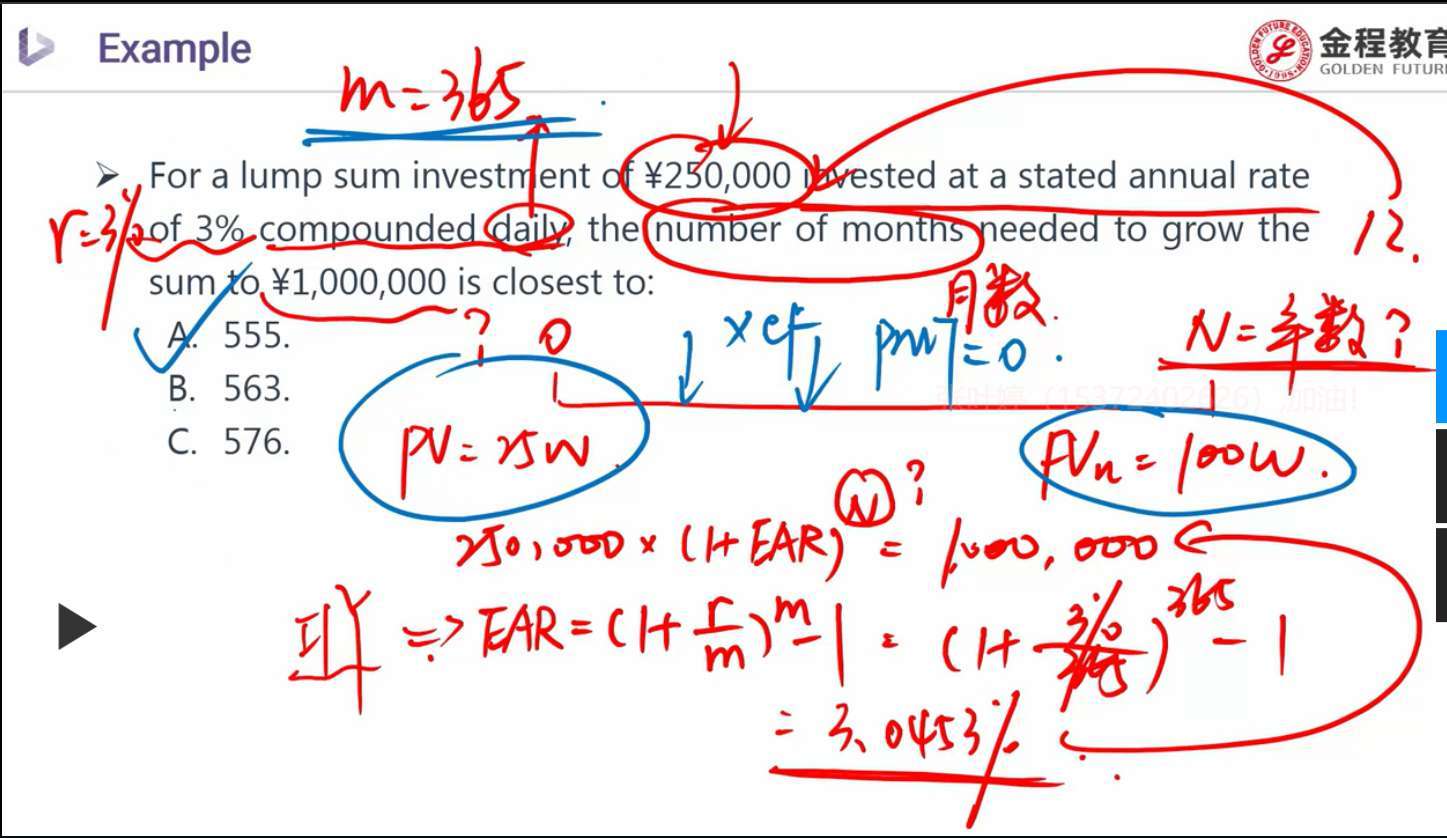 Example
金程教育
GOLDEN FUTUR
m=365
For a lump sum investment of ¥250,000 invested at a stated annual rate
r=3%
of 3% compounded daily, the number of months needed to grow the
12.
sum to ¥1,000,000 is closest to:
月数.
A. 555.
? 0
×CF
PMT=0.
N=年数?
B. 563.
C. 576.
PV=25W.
FVn=100W.
250,000×(1+EAR)^N?=1,000,000
⇒EAR=(1+r/m)^m-1=(1+3%/365)^365-1
=3.0453%